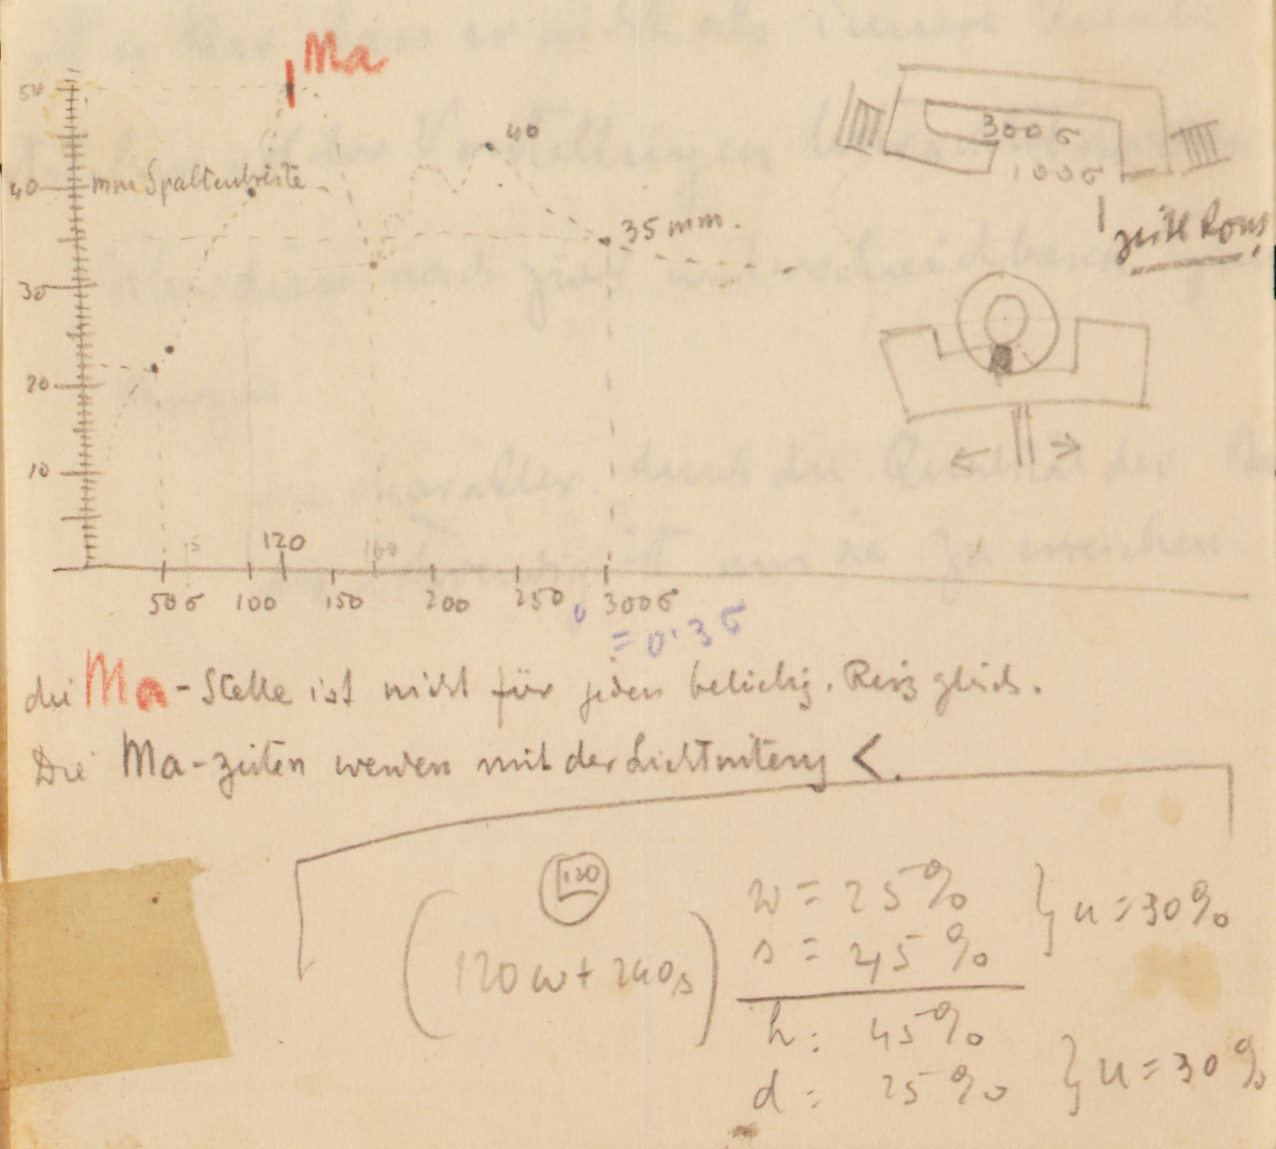 Ma
50
40
mm Spaltenbreite
40
35 mm.
30
20
10
300σ
100σ
zeitl Kons.
15
120
160
50σ 100 150 200 250 300σ
= 0·3 σ
die Ma-Stelle ist nicht für jeden beliebig. Reiz gleich.
Die Ma-zeiten werden mit der <.
120
(120w + 240s)
w = 25%
s = 45%
} u = 30%
h: 45%
d: 25%
} u = 30%